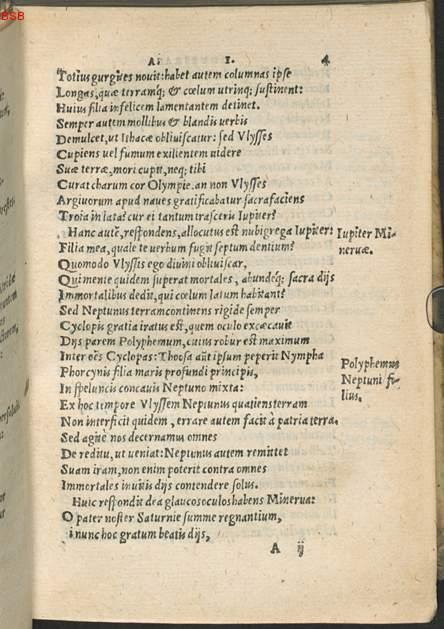 BSB
A 1. 4
Totius gurgites nouit: habet autem columnas ipse
Longas, quæ terramq; & cœlum utrinq; sustinent:
Huius filia infelicem lamentantem detinet.
Semper autem mollibus & blandis uerbis
Demulcet, ut Ithacæ obliuiscatur: sed Vlysses
Cupiens uel fumum exilientem uidere
Suæ terræ, mori cupit, neq; tibi
Curat charum cor Olympie. an non Vlysses
Argiuorum apud naues gratificabatur sacra faciens
Troia in lata? cur ei tantum irasceris Iupiter?
Hanc autē, respondens, allocutus est nubigrega Iupiter:
Iupiter Mi-
neruæ.
Filia mea, quale te uerbum fugit septum dentium?
Quomodo Vlyssis ego diuini obliuiscar,
Qui mente quidem superat mortales, abundeq; sacra dijs
Immortalibus dedit, qui cœlum latum habitant?
Sed Neptunus terram continens rigide semper
Cyclopis gratia iratus est, quem oculo excæcauit
Dijs parem Polyphemum, cuius robur est maximum
Inter oēs Cyclopas: Thoosa aūt ipsum peperit Nympha
Polyphemus
Neptuni fi-
lius.
Phorcynis filia maris profundi principis,
In speluncis concauis Neptuno mixta:
Ex hoc tempore Vlyssem Neptunus quatiens terram
Non interficit quidem, errare autem facit à patria terra.
Sed agite nos decernamus omnes
De reditu, ut ueniat: Neptunus autem remittet
Suam iram, non enim poterit contra omnes
Immortales inuitis dijs contendere solus.
Huic respondit dea glaucos oculos habens Minerua:
O pater noster Saturnie summe regnantium,
i nunc hoc gratum beatis dijs,
A ij